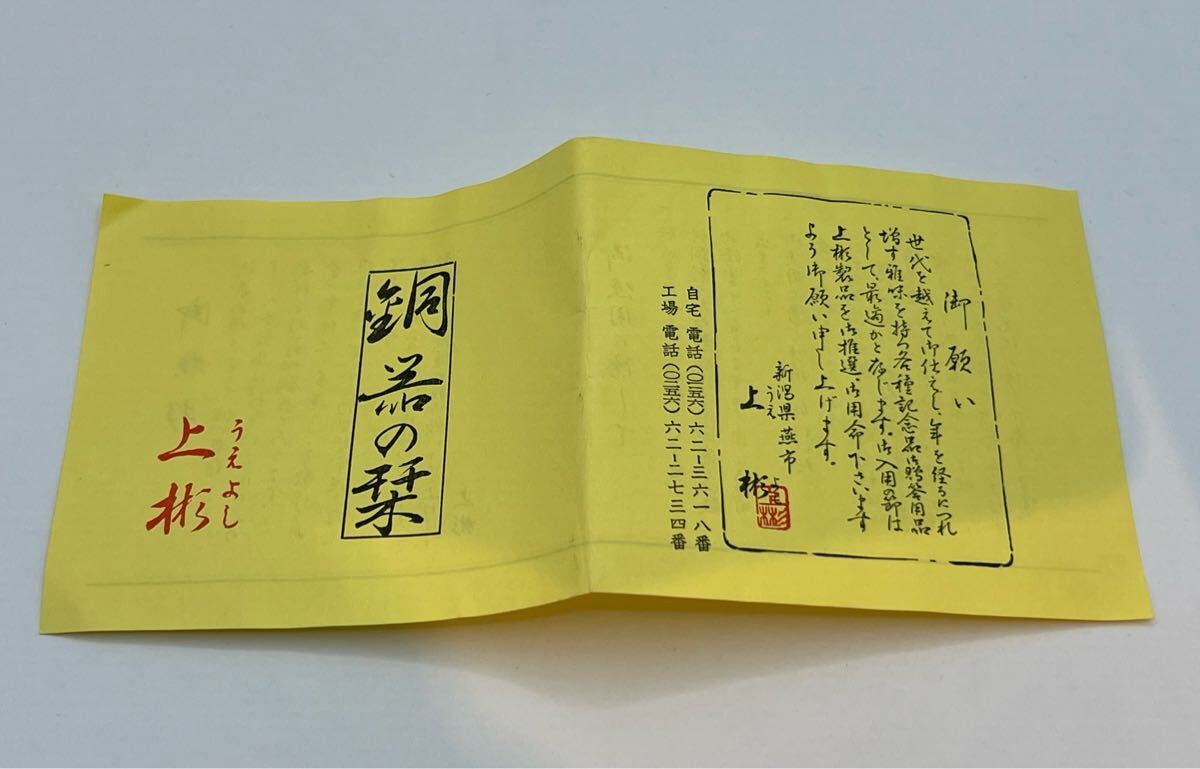 御願い
世代を越えて御仕えし、年を経るにつれ
増す雅味を持つ各種記念品御贈答用品
として、最適かと存じます。御入用の節は
上彬製品を御推選、御用命下さいます
よう御願い申し上げます。
新潟県燕市
うえ よし
上 彬
自宅 電話(〇二五六)六二-三六一八番
工場 電話(〇二五六)六二-二七三四番
銅器の栞
うえよし
上彬